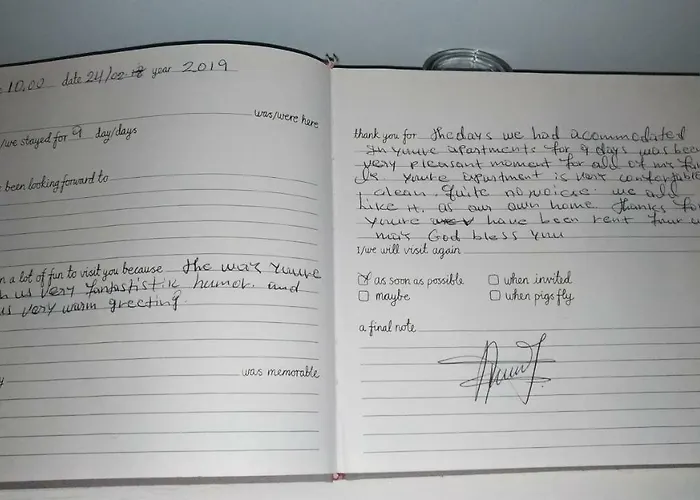 10.00 date 24/02 year 2019
was/were here
/we stayed for 9 day/days
been looking forward to
n a lot of fun to visit you because the way youre
us very fantastistik humor. and
us very warm greeting.
was memorable
thank you for the days we had acommodated
In youre apartments for 9 days was been
very pleasant moment for all of
youre apartment is very comfortable
clean. quite no voice. we all
like it, as our own home. thanks for
youre have been rent
may God bless you
I/we will visit again
as soon as possible
when invited
maybe
when pigs fly
a final note